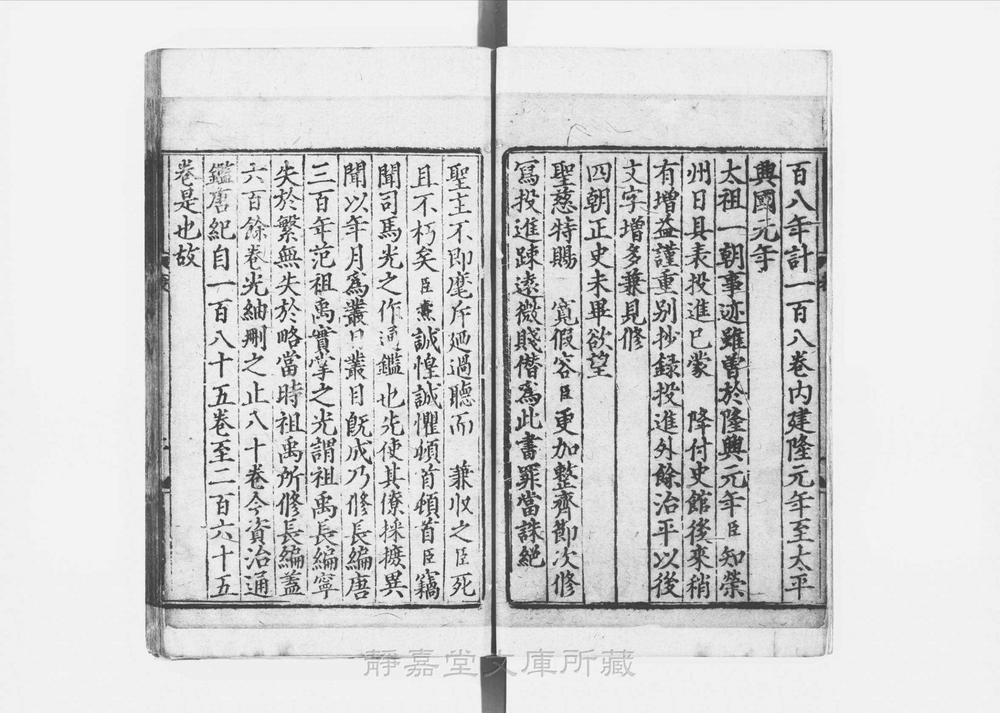 百八年計一百八卷內建隆元年至太平
興國元年
太祖一朝事迹雖曽於隆興元年臣知榮
州日具表投進已蒙　降付史館後來稍
有增益謹重别抄録投進外餘治平以後
文字增多兼見修
四朝正史未畢欲望
聖慈特賜　寛假容臣更加整齊節次修
寫投進踈遠微賤僣爲此書罪當誅絶
聖主不即麾斥廼過聽而　兼收之臣死
且不朽矣臣燾誠惶誠懼頓首頓首臣竊
聞司馬光之作通鑑也先使其僚採摭異
聞以年月爲叢目叢目旣成乃修長編唐
三百年范祖禹實掌之光謂祖禹長編寧
失於繁無失於略當時祖禹所修長編盖
六百餘卷光紬刪之止八十卷今資治通
鑑唐紀自一百八十五卷至二百六十五
卷是也故
靜嘉堂文庫所藏